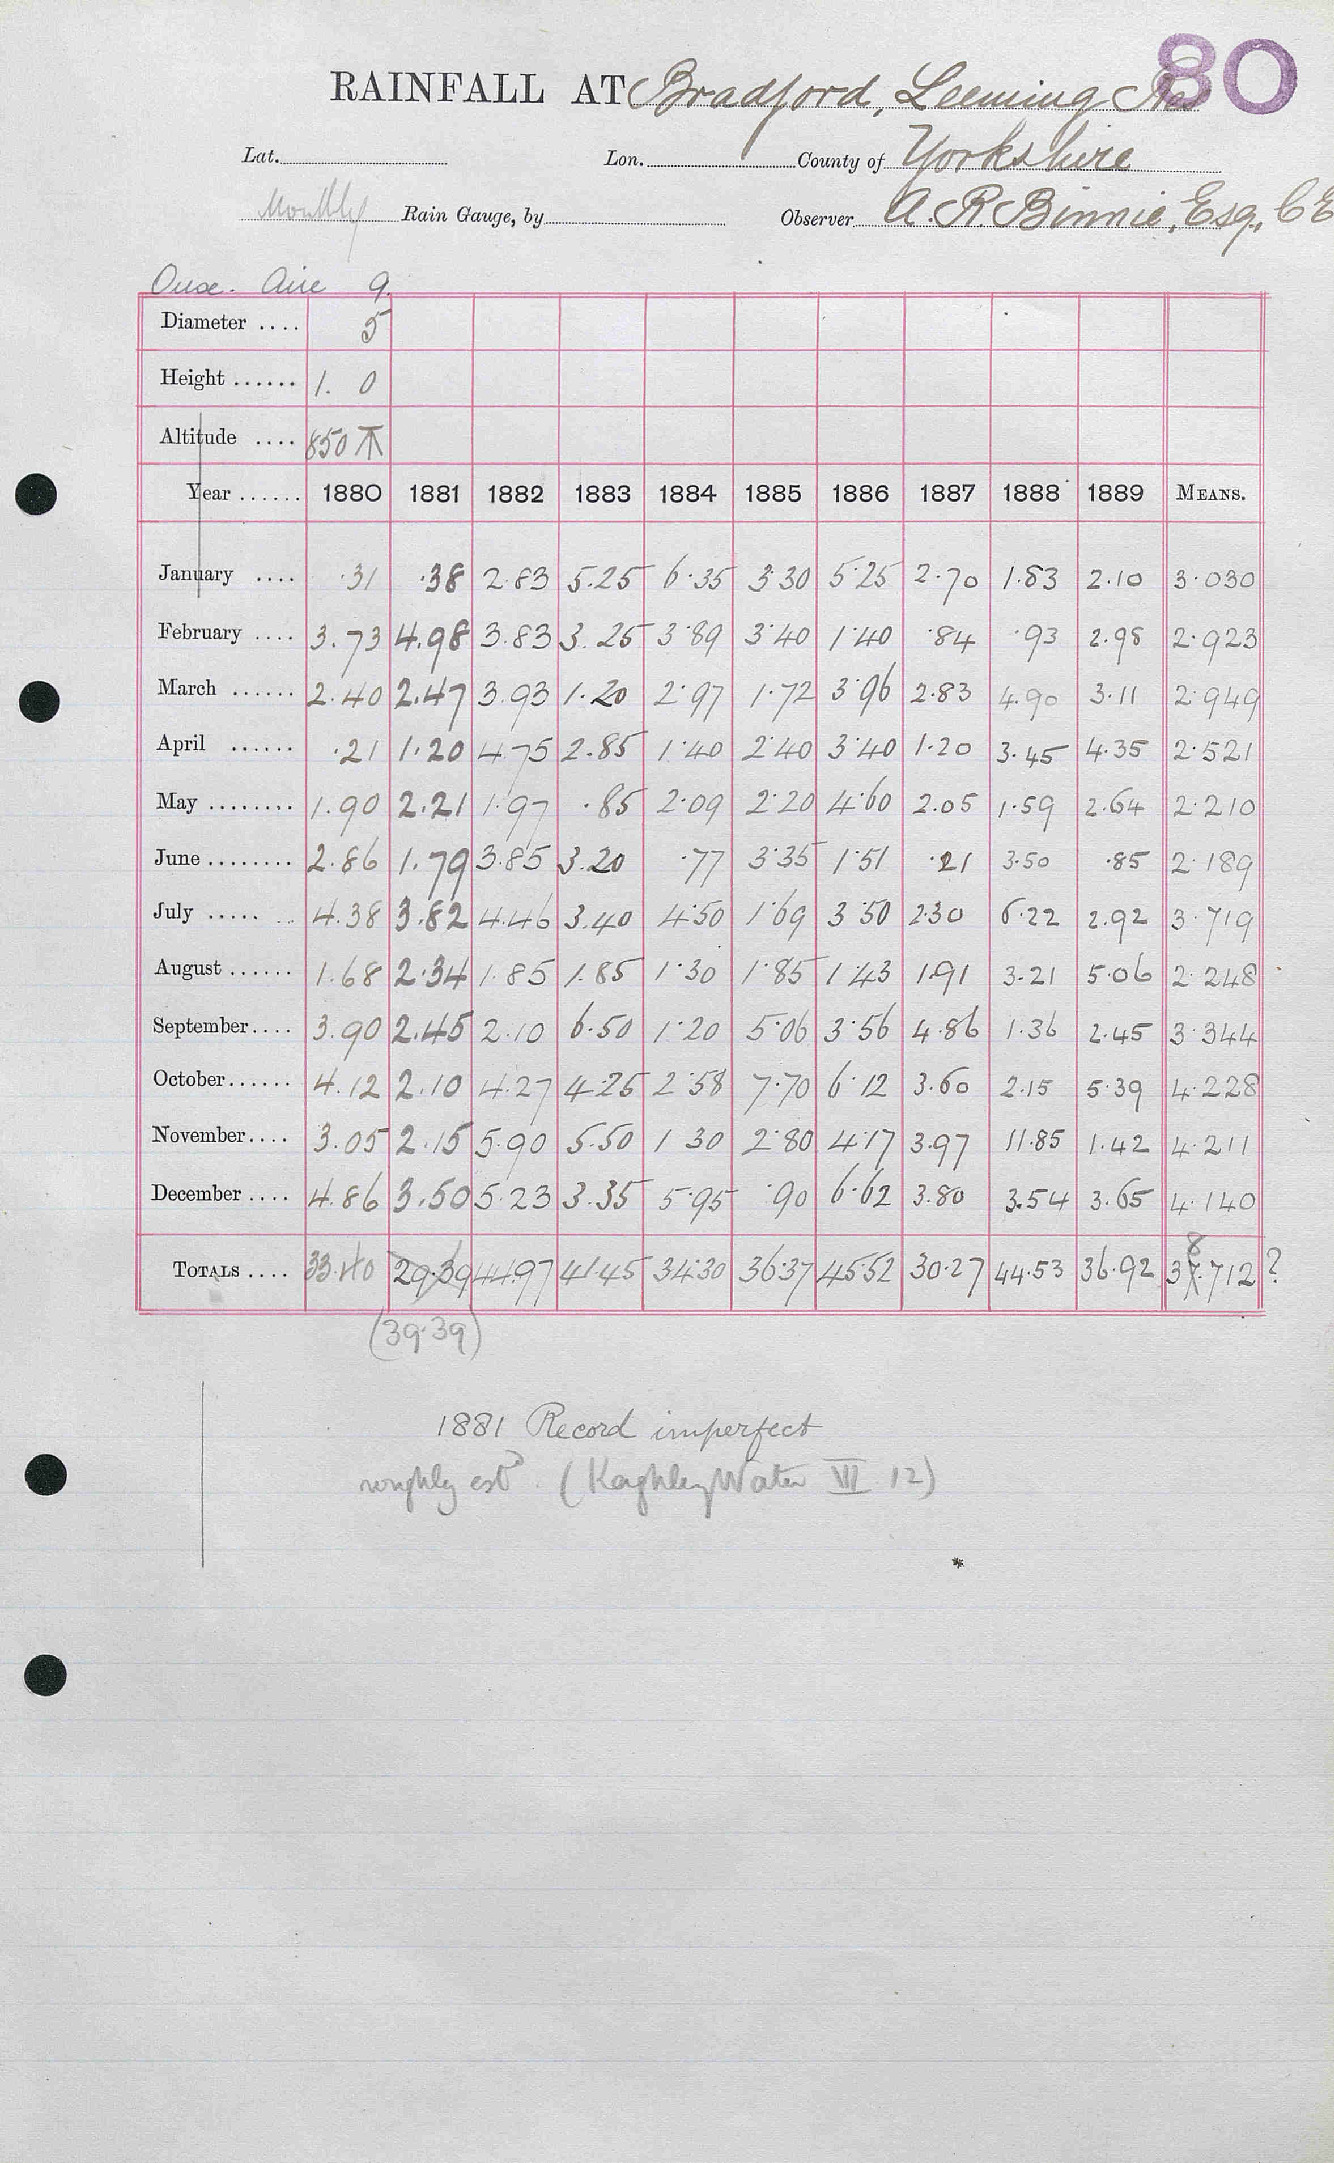 80
RAINFALL AT Bradford, Leeming Res
Lat. Lon. County of Yorkshire
Monthly Rain Gauge, by Observer A. R. Binnie, Esq., C E
Ouse. Aire 9.
Diameter .... 5
Height ...... 1. 0
Altitude .... 850
Year ...... 1880 1881 1882 1883 1884 1885 1886 1887 1888 1889 MEANS.
January .... ·31 ·38 2·83 5.25 6·35 3·30 5·25 2·70 1·83 2·10 3·030
February .... 3.73 4.98 3.83 3.25 3·89 3·40 1·40 ·84 ·93 2.98 2·923
March ...... 2.40 2.47 3.93 1.20 2·97 1.72 3·96 2·83 4.90 3.11 2·949
April ...... ·21 1·20 4·75 2.85 1·40 2·40 3·40 1·20 3·45 4·35 2·521
May ........ 1.90 2.21 1·97 ·85 2·09 2·20 4·60 2·05 1·59 2·64 2·210
June ........ 2.86 1.79 3.85 3.20 ·77 3·35 1·51 ·21 3·50 ·85 2·189
July ..... .. 4.38 3.82 4.46 3.40 4·50 1·69 3·50 2·30 6·22 2.92 3·719
August ...... 1.68 2·34 1.85 1.85 1·30 1·85 1·43 1·91 3·21 5·06 2·248
September.... 3.90 2.45 2.10 6.50 1·20 5·06 3·56 4·86 1·36 2·45 3·344
October...... 4.12 2.10 4.27 4.25 2·58 7·70 6·12 3.60 2·15 5·39 4·228
November.... 3.05 2.15 5.90 5.50 1 30 2·80 4·17 3.97 11·85 1.42 4·211
December .... 4.86 3.50 5.23 3.35 5·95 ·90 6·62 3.80 3.54 3.65 4·140
8
TOTALS .... 33.40 29.39 44.97 41.45 34.30 36.37 45.52 30·27 44·53 36·92 37.712 ?
(39·39)
1881 Record imperfect
roughly estd. (Keighley Water VII 12)